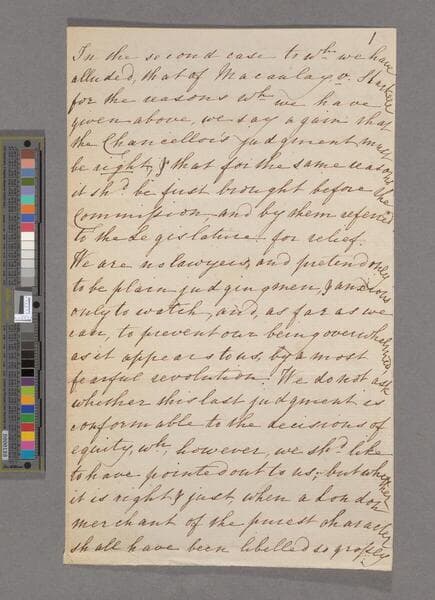 1
In the second case to wh. we have
alluded, that of Macaulay v. Starkell
for the reasons wh. we have
given above, we say again that
the Chancellor's judgment must
be right, & that for the same reason
it shd. be first brought before the
Commission, and by them referred
To the Legislature for relief.
We are no lawyers, and pretend only
to be plain judging men, & anxious
only to watch, and, as far as we
can, to prevent our being overwhelmed
as it appears to us, by a most
fearful revolution. We do not ask
whether this last judgment is
conformable to the decisions of
equity, wh., however, we shd. like
to have pointed out to us; but whether
it is right & just, when a London
merchant of the purest character
shall have been libelled so grossly